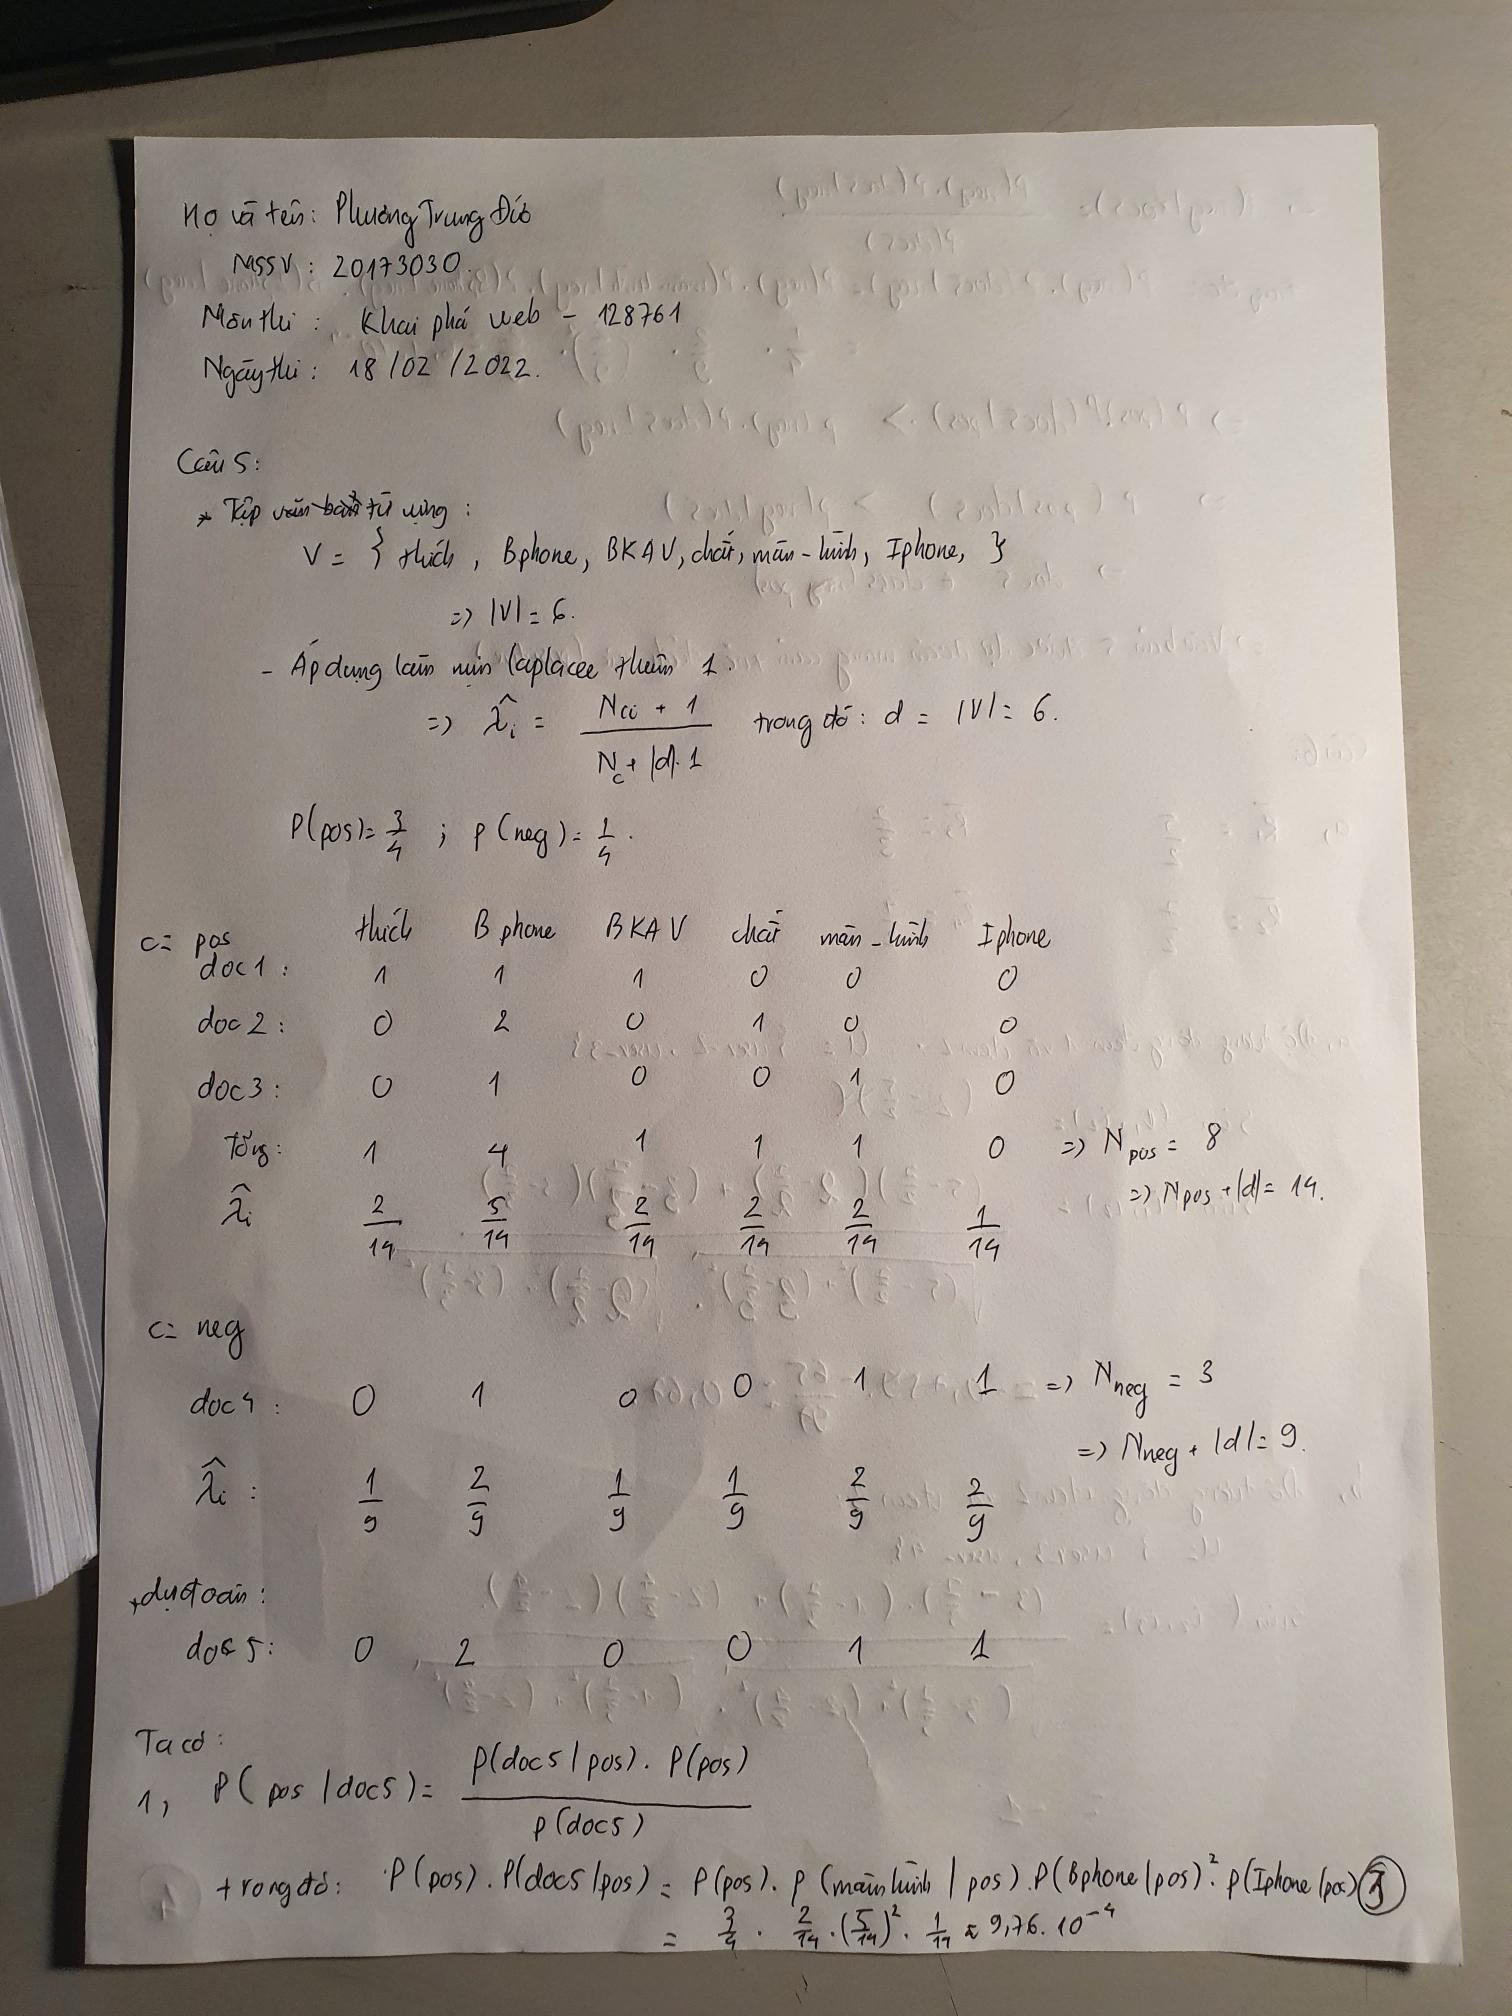 Họ và tên: Phương Trung Đức
MSSV: 20173030.
Môn thi: Khai phá web - 128761
Ngày thi: 18/02/2022.
Câu 5:
* Tập văn bản từ vựng:
V = { thích, Bphone, BKAV, chất, màn-hình, Iphone, }
=> |V| = 6.
- Áp dụng làm mịn laplacee thêm 1.
=> λ̂i = (Nci + 1) / (Nc + |d|.1) trong đó: d = |V| = 6.
P(pos) = 3/4 ; P(neg) = 1/4.
c = pos thích Bphone BKAV chất màn-hình Iphone
doc1: 1 1 1 0 0 0
doc2: 0 2 0 1 0 0
doc3: 0 1 0 0 1 0
Tổng: 1 4 1 1 1 0 => Npos = 8
=> Npos + |d| = 14.
λ̂i 2/14 5/14 2/14 2/14 2/14 1/14
c = neg
doc4: 0 1 0 0 1 1 => Nneg = 3
=> Nneg + |d| = 9.
λ̂i: 1/9 2/9 1/9 1/9 2/9 2/9
+ dự đoán:
doc5: 0 2 0 0 1 1
Ta có:
1, P(pos|doc5) = P(doc5|pos). P(pos) / P(doc5)
trong đó: P(pos). P(doc5|pos) = P(pos). P(màn hình|pos). P(Bphone|pos)². P(Iphone|pos)
= 3/4 . 2/14 . (5/14)² . 1/14 ≈ 9,76.10⁻⁴